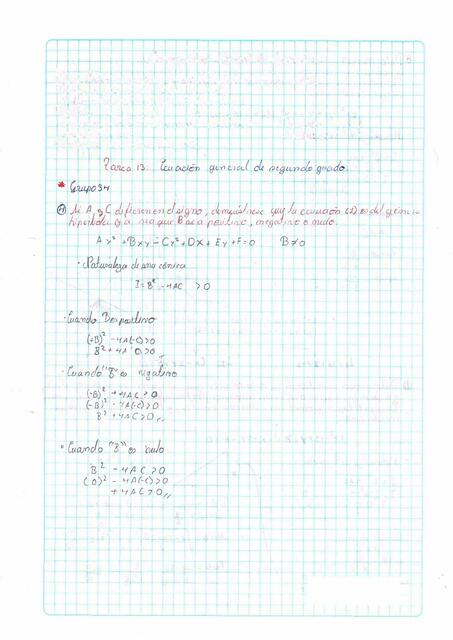 Tarea 13: Ecuación general de segundo grado.
* Grupo 34
1) Si A y C difieren en el signo, demuéstrese que la ecuación (2) es del género
hipérbola ya sea que B sea positivo, negativo o nulo.
Ax² + Bxy - Cy² + DX + EY + F = 0 B ≠ 0
· Naturaleza de una cónica
I = B² - 4AC > 0
· Cuando B es positivo
(+B)² - 4A(-C) > 0
B² + 4AC > 0,,
· Cuando "B" es negativo
(-B)² + 4AC > 0
(-B)² - 4A(-C) > 0
B² + 4AC > 0,,
· Cuando "B" es nulo
B² - 4AC > 0
(0)² - 4A(-C) > 0
+ 4AC > 0,,